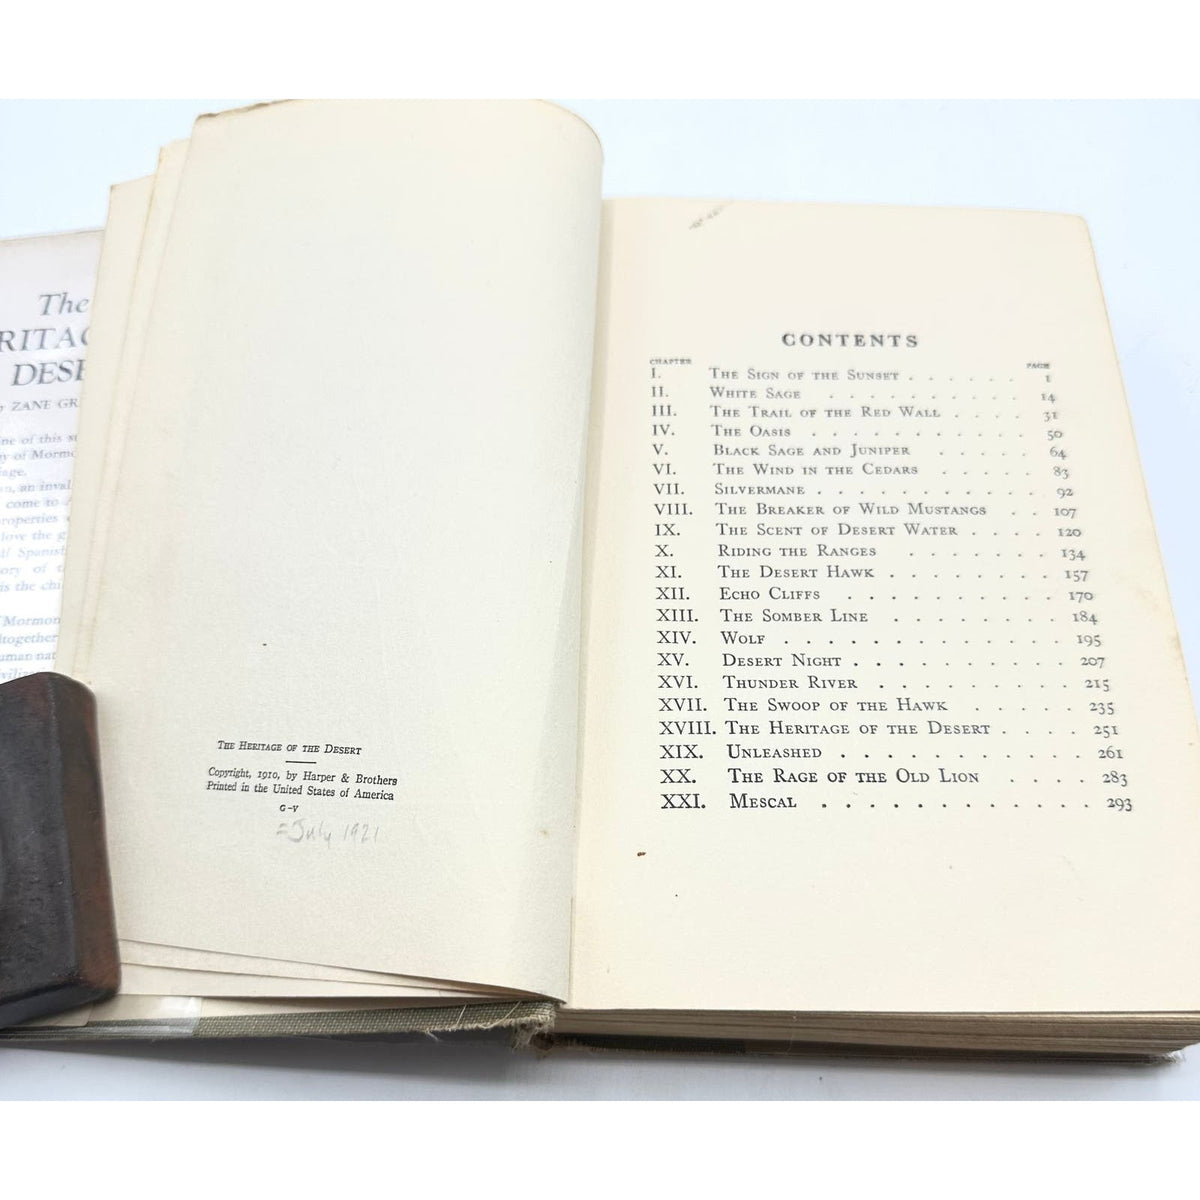 The
RITAG
DESE
y ZANE GR
ne of this s
y of Mormo
age.
an, an inval
come to A
properties
love the g
Spanish
ory of
is the chi
Mormon
together
uman nat
THE HERITAGE OF THE DESERT
Copyright, 1910, by Harper & Brothers
Printed in the United States of America
G-V
=July 1921
CONTENTS
CHAPTER PAGE
I. THE SIGN OF THE SUNSET . . . . . . 1
II. WHITE SAGE . . . . . . . . . . 14
III. THE TRAIL OF THE RED WALL . . . . 31
IV. THE OASIS . . . . . . . . . . . 50
V. BLACK SAGE AND JUNIPER . . . . . 64
VI. THE WIND IN THE CEDARS . . . . . 83
VII. SILVERMANE . . . . . . . . . . . 92
VIII. THE BREAKER OF WILD MUSTANGS . . 107
IX. THE SCENT OF DESERT WATER . . . . 120
X. RIDING THE RANGES . . . . . . . 134
XI. THE DESERT HAWK . . . . . . . . 157
XII. ECHO CLIFFS . . . . . . . . . . 170
XIII. THE SOMBER LINE . . . . . . . . 184
XIV. WOLF . . . . . . . . . . . . . 195
XV. DESERT NIGHT . . . . . . . . . . 207
XVI. THUNDER RIVER . . . . . . . . . 215
XVII. THE SWOOP OF THE HAWK . . . . . 235
XVIII. THE HERITAGE OF THE DESERT . . . . 251
XIX. UNLEASHED . . . . . . . . . . . 261
XX. THE RAGE OF THE OLD LION . . . . 283
XXI. MESCAL . . . . . . . . . . . . 293